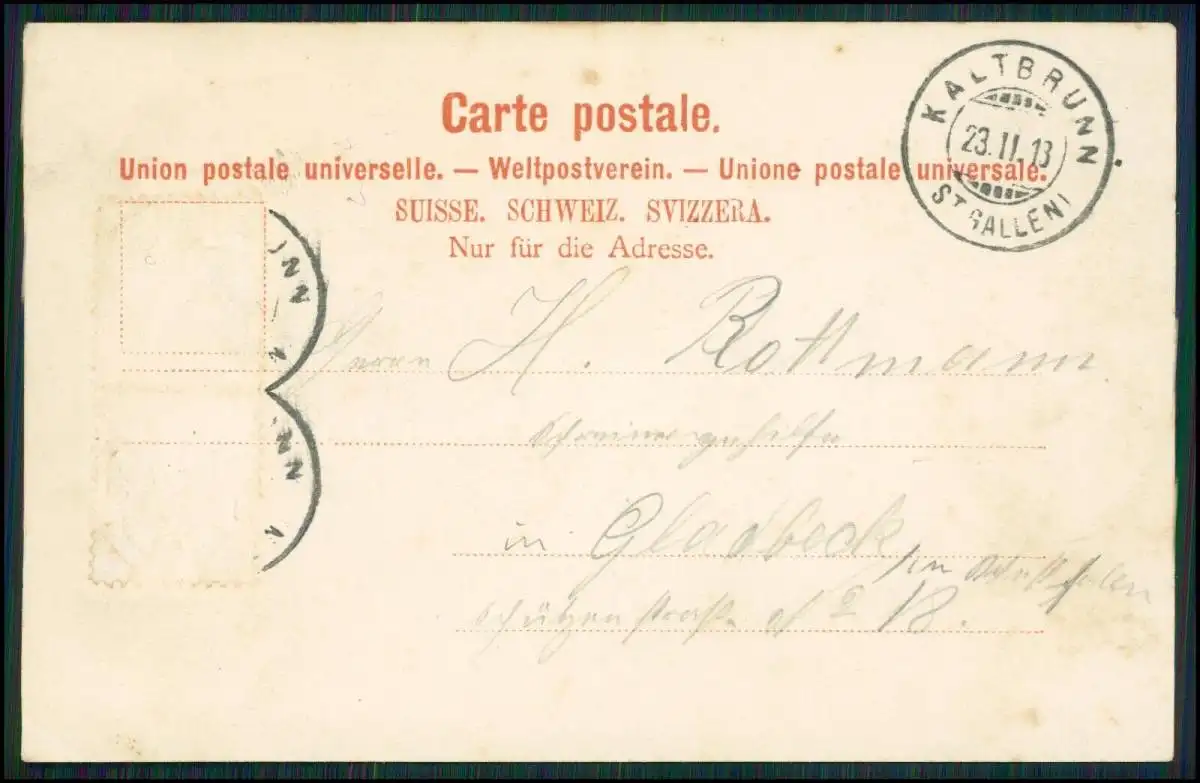 Carte postale.
Union postale universelle. — Weltpostverein. — Unione postale universale.
SUISSE. SCHWEIZ. SVIZZERA.
Nur für die Adresse.
KALTBRUNN
23.II.13
(ST GALLEN)
NN
NN
Herrn H. Rottmann
Schreinergehilfe
in Gladbeck
in Westfalen
Schützenstraße 18.